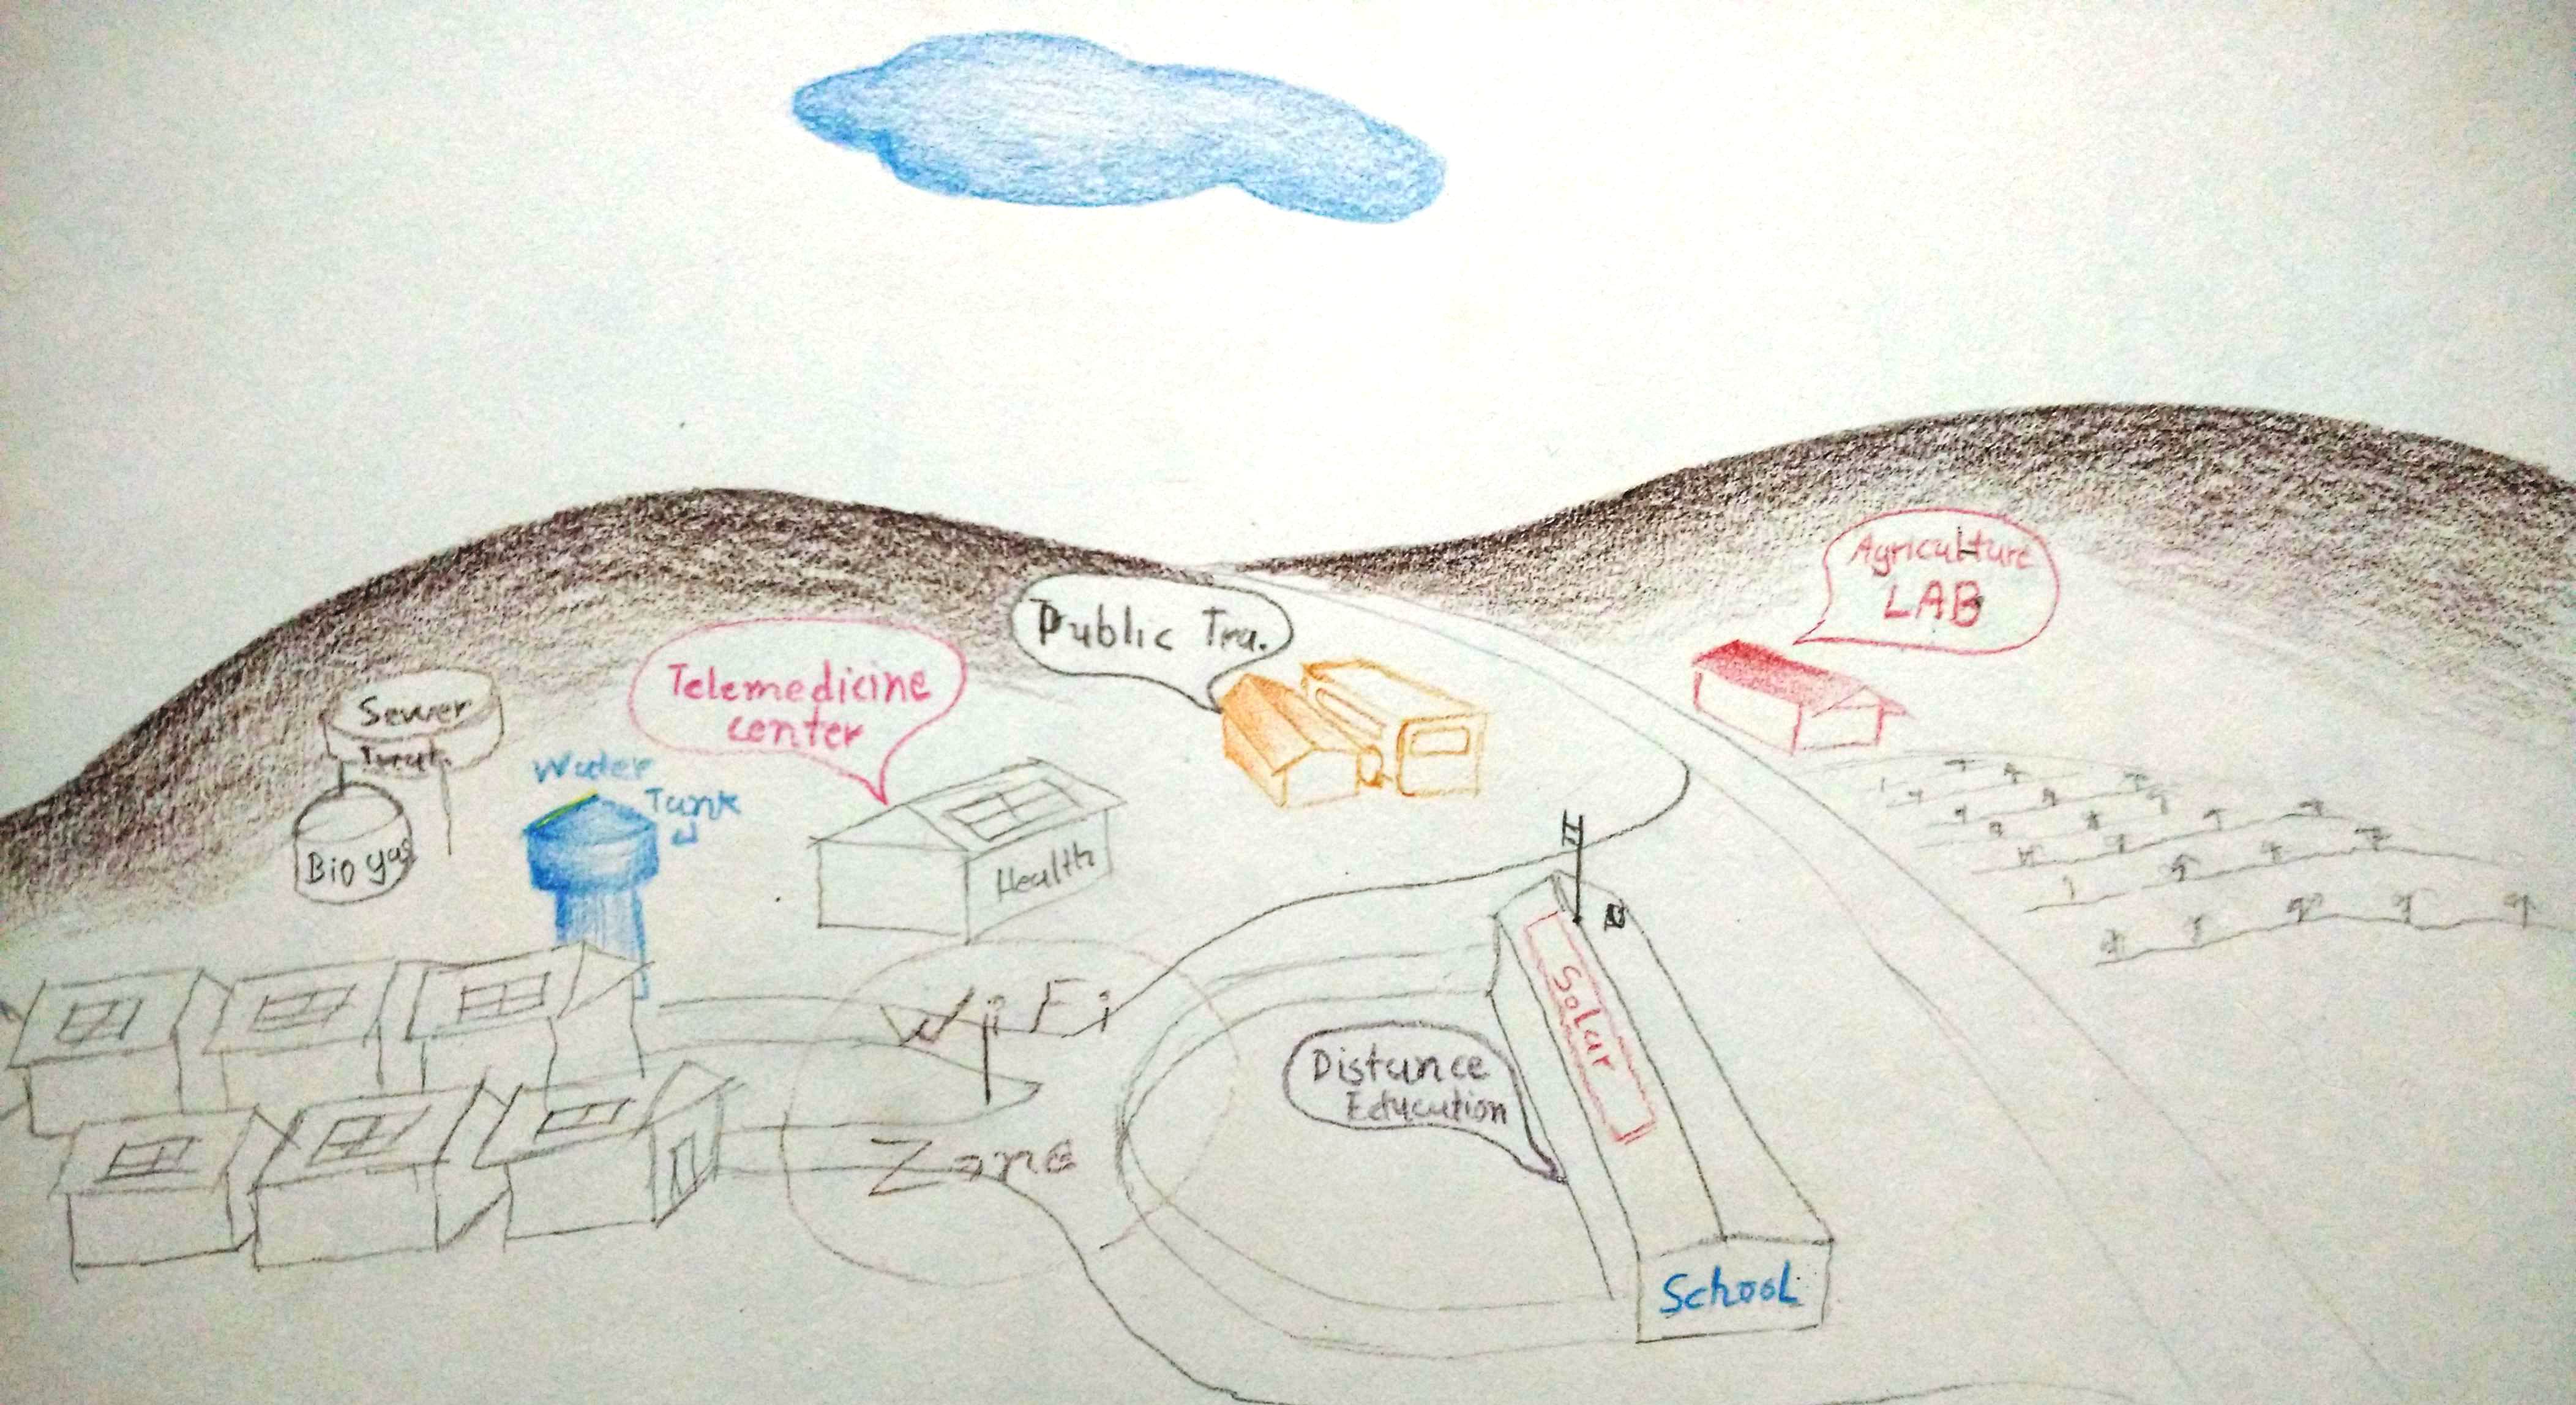 Agriculture
LAB
Public Tra.
Telemedicine
center
Sewer
Treat.
Water
Tank
Bio gas
Health
Solar
WiFi
Zone
Distance
Education
School